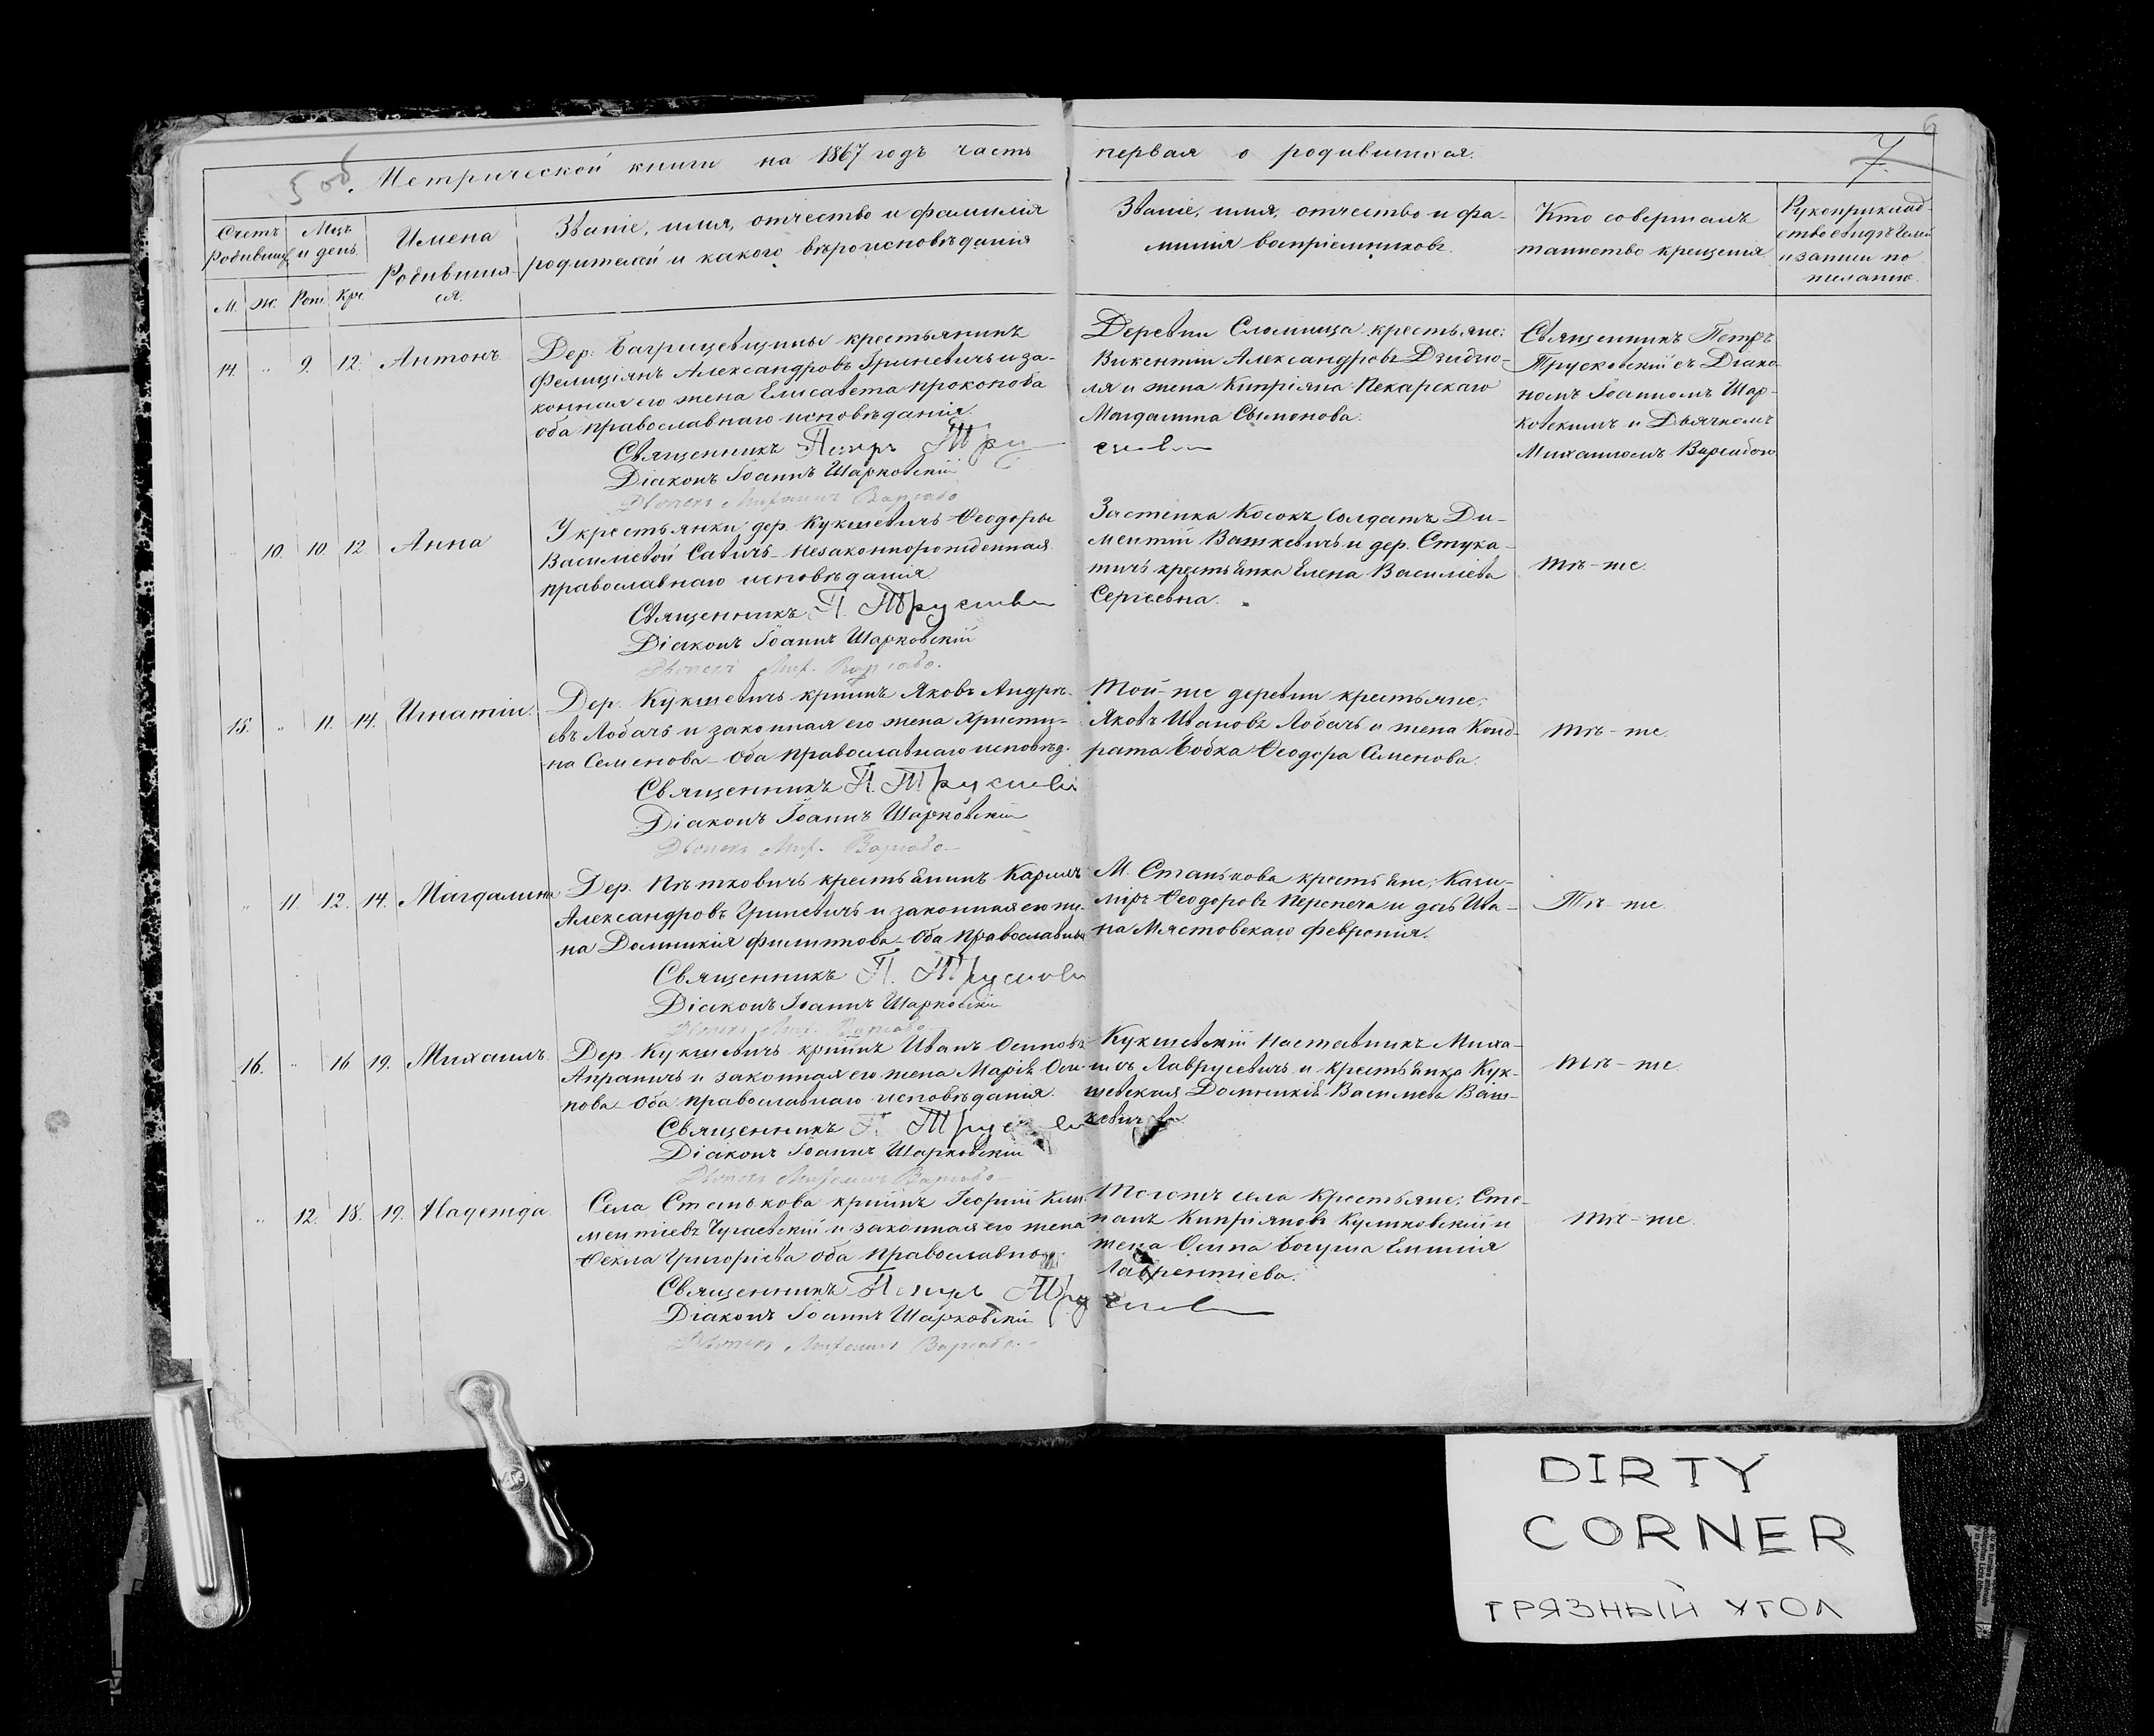 6
5 об.
7.
Метрической книги на 1867 годъ часть первая о родившихся.
Счетъ Родивших.
Мцъ и день.
Имена Родившихся.
Званіе, имя, отчество и фамилія
родителей и какого вѣроисповѣданія
Званіе, имя, отчество и фа-
милія воспріемниковъ.
Кто совершалъ
таинство крещенія.
Рукоприклад-
ство свидѣтелей
и записи по
желанію.
М. Ж. Рож. Кре.
14. " 9. 12. Антонъ
Дер. Багрицевщины крестьянинъ
Фелиціянъ Александровъ Гриневичъ и за-
конная его жена Елисавета Прокопова
оба православнаго исповѣданія.
Священникъ Петръ Тру
Діаконъ Іоаннъ Шарковскій
Михаилъ
Деревни Сломница крестьяне:
Викентій Александровъ
ля и жена Кипріяна Пекарскаго
Магдалина Сымонова.
Священникъ Петръ
Трусковскій съ Діако-
номъ Іоанномъ Шар-
ковскимъ и Дьячкомъ
Михаиломъ
" 10. 10. 12. Анна
У крестьянки дер. Кукшевичъ Ѳеодоры
Василіевой Савичъ - незаконнорожденная
православнаго исповѣданія.
Священникъ П. Труск
Діаконъ Іоаннъ Шарковскій
Застѣнка Косокъ Солдатъ Ди-
ментій Вашкевичъ и дер. Стука-
тичъ крестьянка Елена Василіева
Сергѣевна.
тѣ-же.
15. " 11. 14. Игнатій.
Дер. Кукшевичъ крнинъ Яковъ Андре-
евъ Лобачъ и законная его жена Христи-
на Семенова - Оба православнаго исповѣд.
Священникъ П. Труск
Діаконъ Іоаннъ Шарковскій
Той-же деревни крестьяне:
Яковъ Ивановъ Лобачъ и жена Конд-
рата Бобка Ѳеодора Семенова.
тѣ-же.
" 11. 12. 14. Магдалина
Дер. Пѣтковичъ крестьянинъ Карпъ
Александровъ Гриневичъ и законная его же-
на Домникія Филиппова - Оба православны
Священникъ П. Труск
Діаконъ Іоаннъ Шарковскій
М. Станькова крестьяне; Кази-
міръ Ѳеодоровъ Перепеча и дочь Ива-
на Мястовскаго Февронія.
Тѣ-же.
16. " 16. 19. Михаилъ.
Дер. Кукшевичъ крнинъ Иванъ Осиповъ
Апраничъ и законная его жена Марія Оси-
пова - Оба православнаго исповѣданія.
Священникъ П. Труск
Діаконъ Іоаннъ Шарковскій
Кукшевскій Наставникъ Миха-
илъ Лаврусевичъ и крестьянка Кук-
шевская Домникія Василіева Ваш-
кевичева
тѣ-же.
" 12. 18. 19. Надежда.
Села Станькова крнинъ Георгій Кли-
ментіевъ Чугаевскій и законная его жена
Ѳекла Григоріева оба православно
Священникъ Петръ Труск
Діаконъ Іоаннъ Шарковскій
Тогожъ села Крестьяне; Сте-
панъ Кипріяновъ Куликовскій и
жена Осипа Богуша Емилія
Лаврентіева.
тѣ-же.
DIRTY
CORNER
ГРЯЗНЫЙ УГОЛ